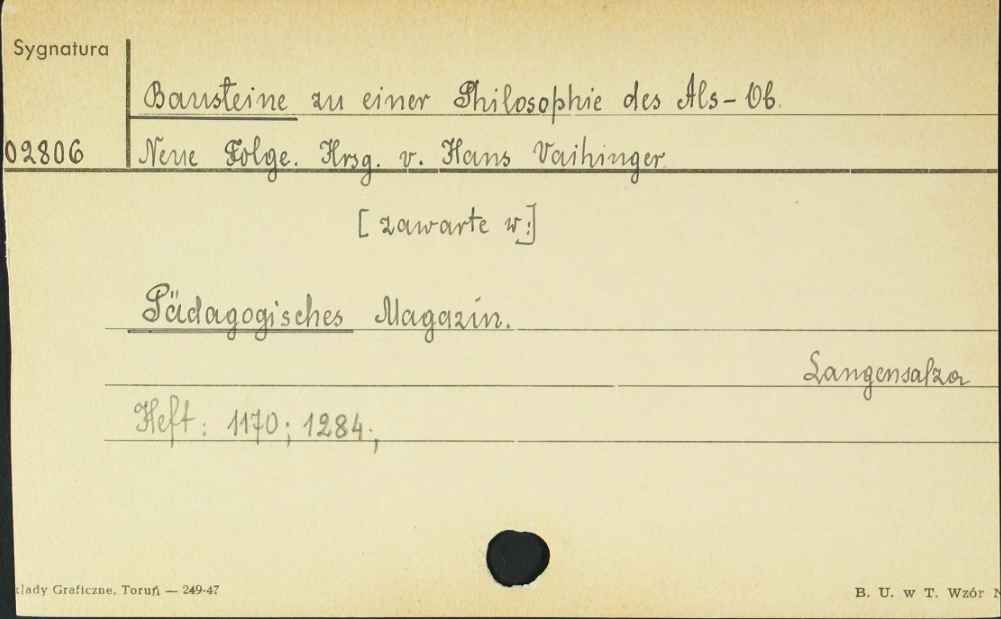 Sygnatura
Bausteine zu einer Philosophie des Als-Ob.
02806
Neue Folge. Hrsg. v. Hans Vaihinger
[zawarte w:]
Pädagogisches Magazin.
Langensalza
Heft: 1170; 1284;
kłady Graficzne, Toruń — 249-47
B. U. w T. Wzór N